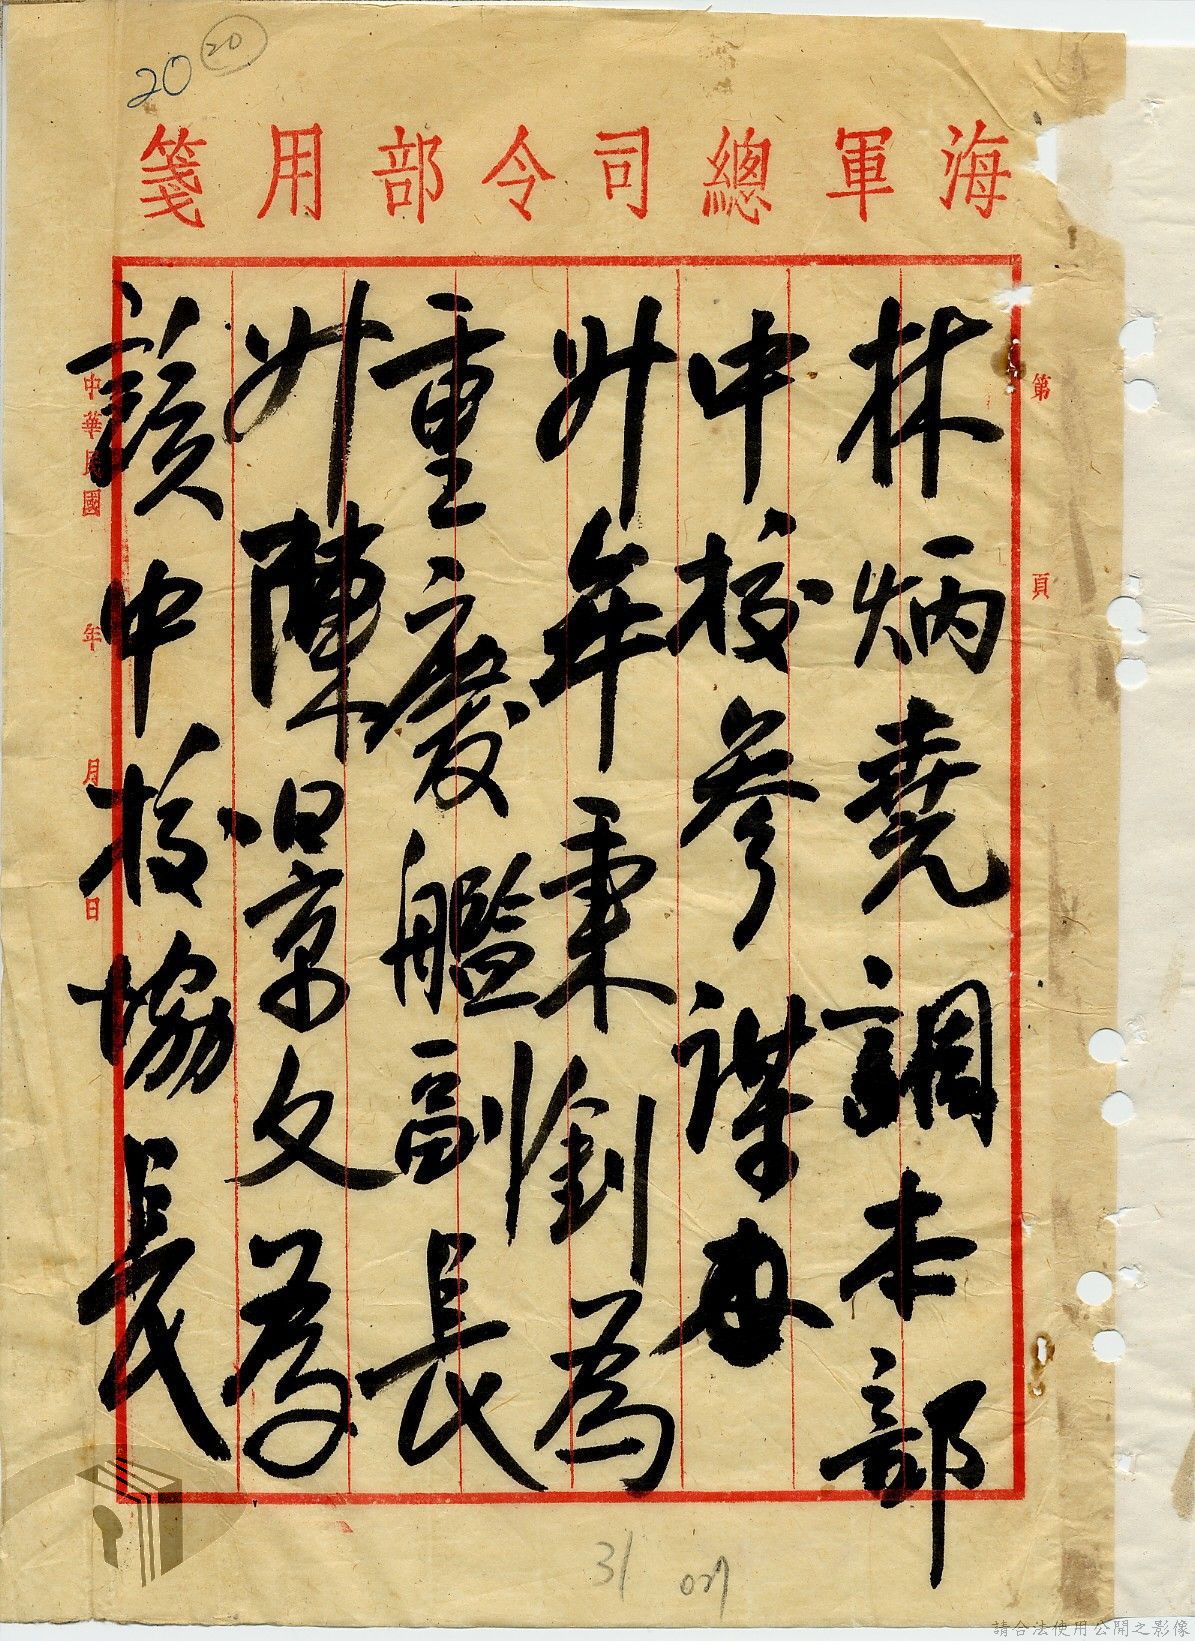 20
20
海軍總司令部用箋
第 頁
林炳堯調本部
中校參謀
升牟秉釗為
重慶艦副長
升陳景文為
該中校協長
中華民國 年 月 日
31
請合法使用公開之影像